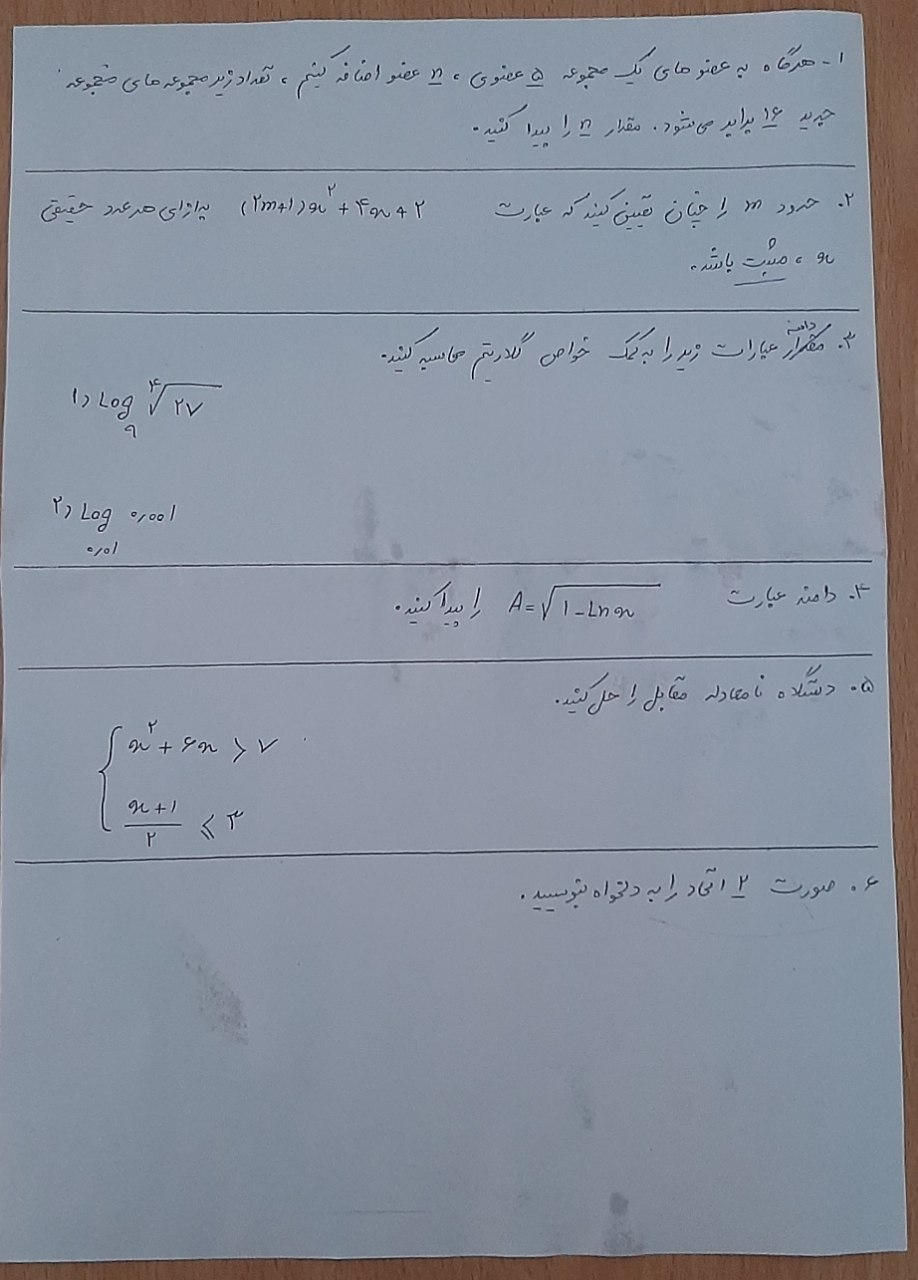 ۱- هرگاه به عضو های یک مجموعه ۵ عضوی ، n عضو اضافه کنیم ، تعداد زیر مجموعه های مجموعه
جدید ۱۶ برابر می‌شود. مقدار n را پیدا کنید.
۲. حدود m را چنان تعیین کنید که عبارت (۲m+۱)x² + ۴x + ۲ به ازای هر عدد حقیقی
x ، مثبت باشد.
دامنه
۳. مقدار عبارات زیر را به کمک خواص لگاریتم محاسبه کنید.
۱) Log₉ ⁴√۲۷
۲) Log ۰٫۰۰۱
۰٫۰۱
۴. دامنه عبارت A = √(1 - Ln x) را پیدا کنید.
۵. دستگاه نامعادله مقابل را حل کنید.
{ x² + ۶x > ۷
x+۱
۲ ⩽ ۳
۶. صورت ۲ اتحاد را به دلخواه بنویسید.